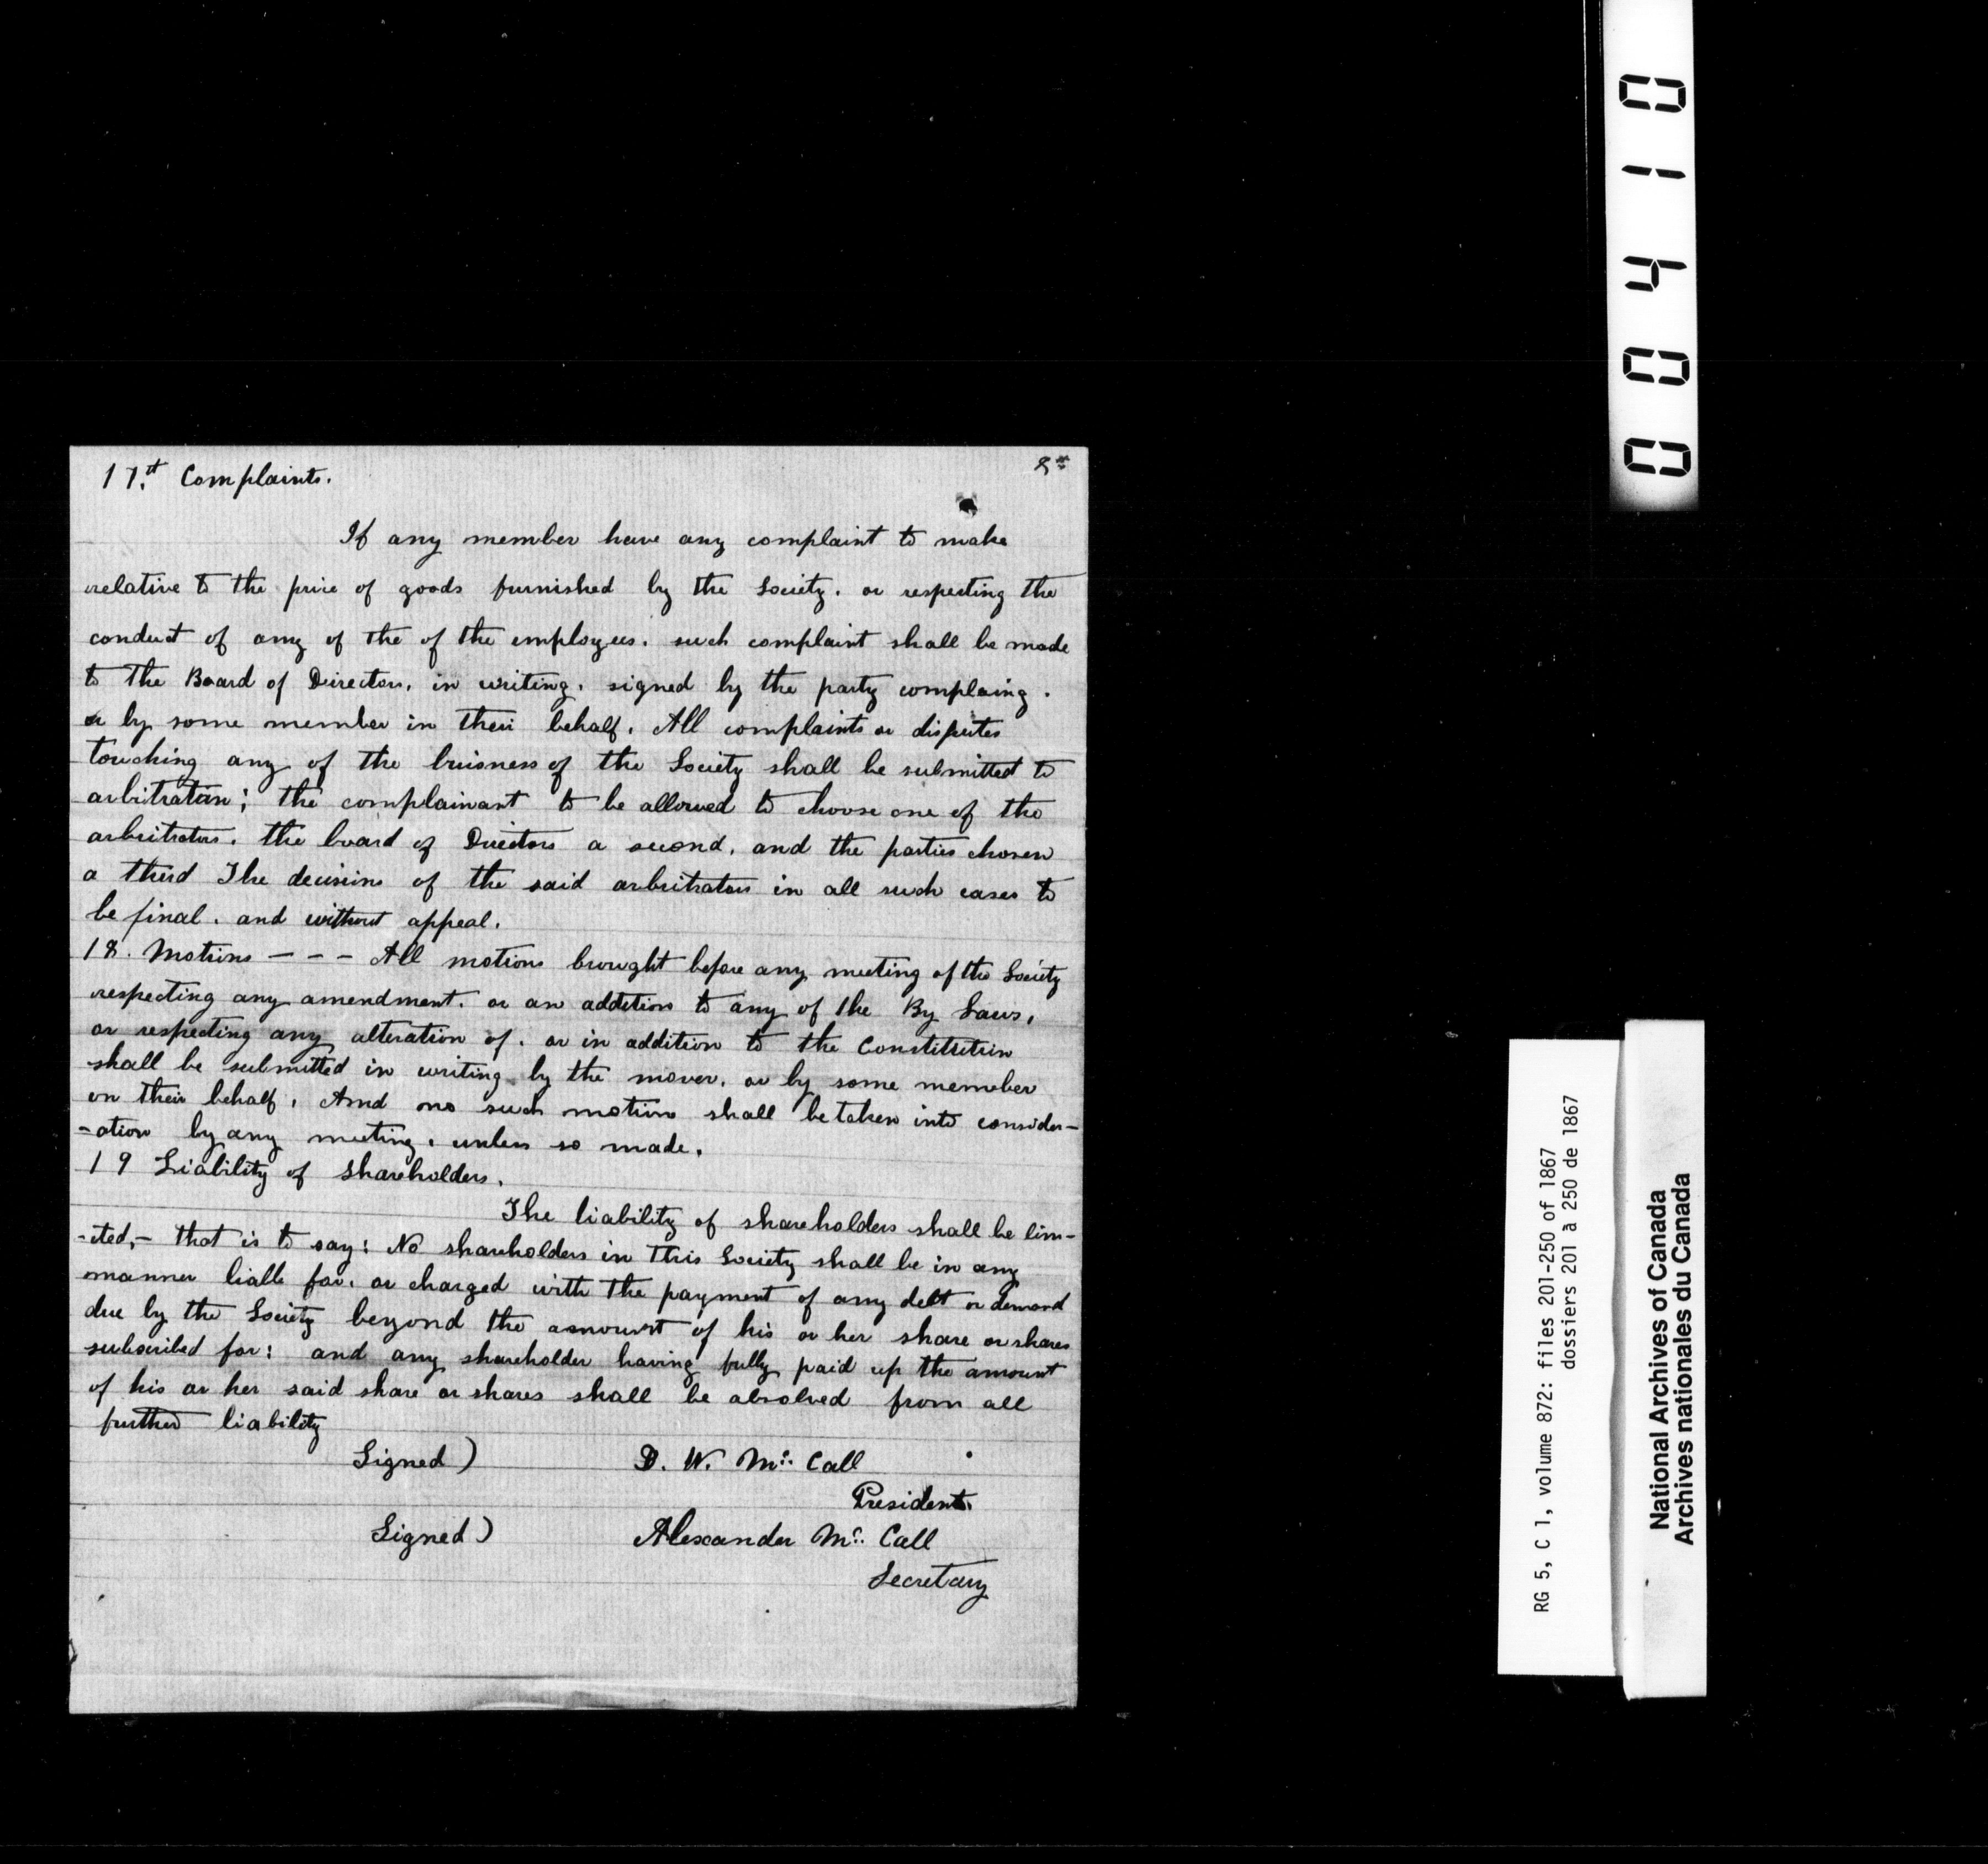 17.st Complaints.
8
If any member have any complaint to make
relative to the price of goods furnished by the Society. or respecting the
conduct of any of the of the employees. such complaint shall be made
to the Board of Directors. in writing. signed by the party complaing.
or by some member in their behalf. All complaints or disputes
touching any of the buisness of the Society shall be submitted to
arbitration; the complainant to be allowed to choose one of the
arbitrators. the board of Directors a second. and the parties chosen
a third The decisions of the said arbritrators in all such cases to
be final. and without appeal.
18. Motions - - - All motions brought before any meeting of the Society
respecting any amendment. or an addition to any of the By Laws.
or respecting any alteration of. or in addition to the Constitution
shall be submitted in writing by the mover. or by some memeber
on their behalf. And no such motion shall be taken into consider-
-ation by any meeting. unless so made.
19 Liability of shareholders.
The liability of shareholders shall be lim-
-ited,- that is to say: No shareholders in this Society shall be in any
manner liable for. or charged with the payment of any debt or demand
due by the Society beyond the amount of his or her share or shares
subscribed for: and any shareholder having fully paid up the amount
of his or her said share or shares shall be absolved from all
further liability
Signed) D. W. Mc. Call
President.
Signed) Alexander Mc. Call
Secretary
00410
RG 5, C 1, volume 872: files 201-250 of 1867
dossiers 201 à 250 de 1867
National Archives of Canada
Archives nationales du Canada